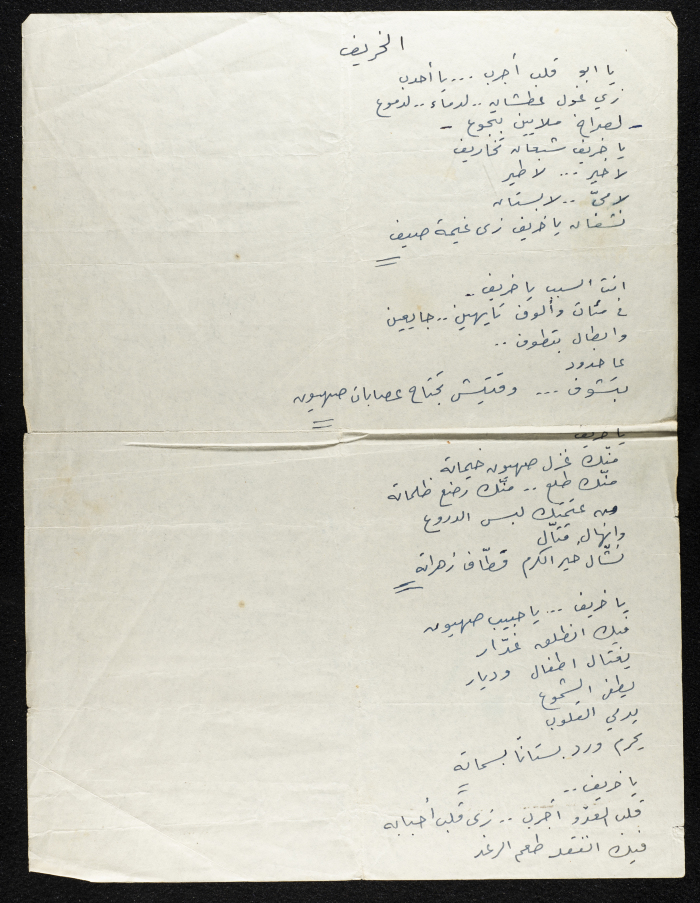 الخريف
يا ابو قلب أجرب ... يا أحدب
زي غول عطشان .. لدماء .. لدموع
- لصراخ ملايين بجوع -
يا خريف شبعان تخاريف
لا خير ... لا طير
لا ميّ .. لا بستان
نشفان يا خريف زي غيمة صيف
انت السبب يا خريف ..
في مئات وألوف تايهين .. جايعين
وابطال بتطوف ..
عا حدود
بتشوف ... وقتيش تجتاح عصابات صهيون
يا خريف
منّك غزل صهيون خيماته
منّك طلع .. منّك رضع ظلماته
من عتمتك لبس الدروع
وانهال قتّال
نشّال خير الكرم قطّاف زهراته
يا خريف ... يا حبيب صهيون
فيك انطلق غدّار
يغتال اطفال وديار
يطفي الشموع
يدمي القلوب
يحرم ورد بستاناً بسماته
يا خريف ..
قلب العدو أجرب .. زي قلب أحبابه
فيك انفقد طعم الرغد